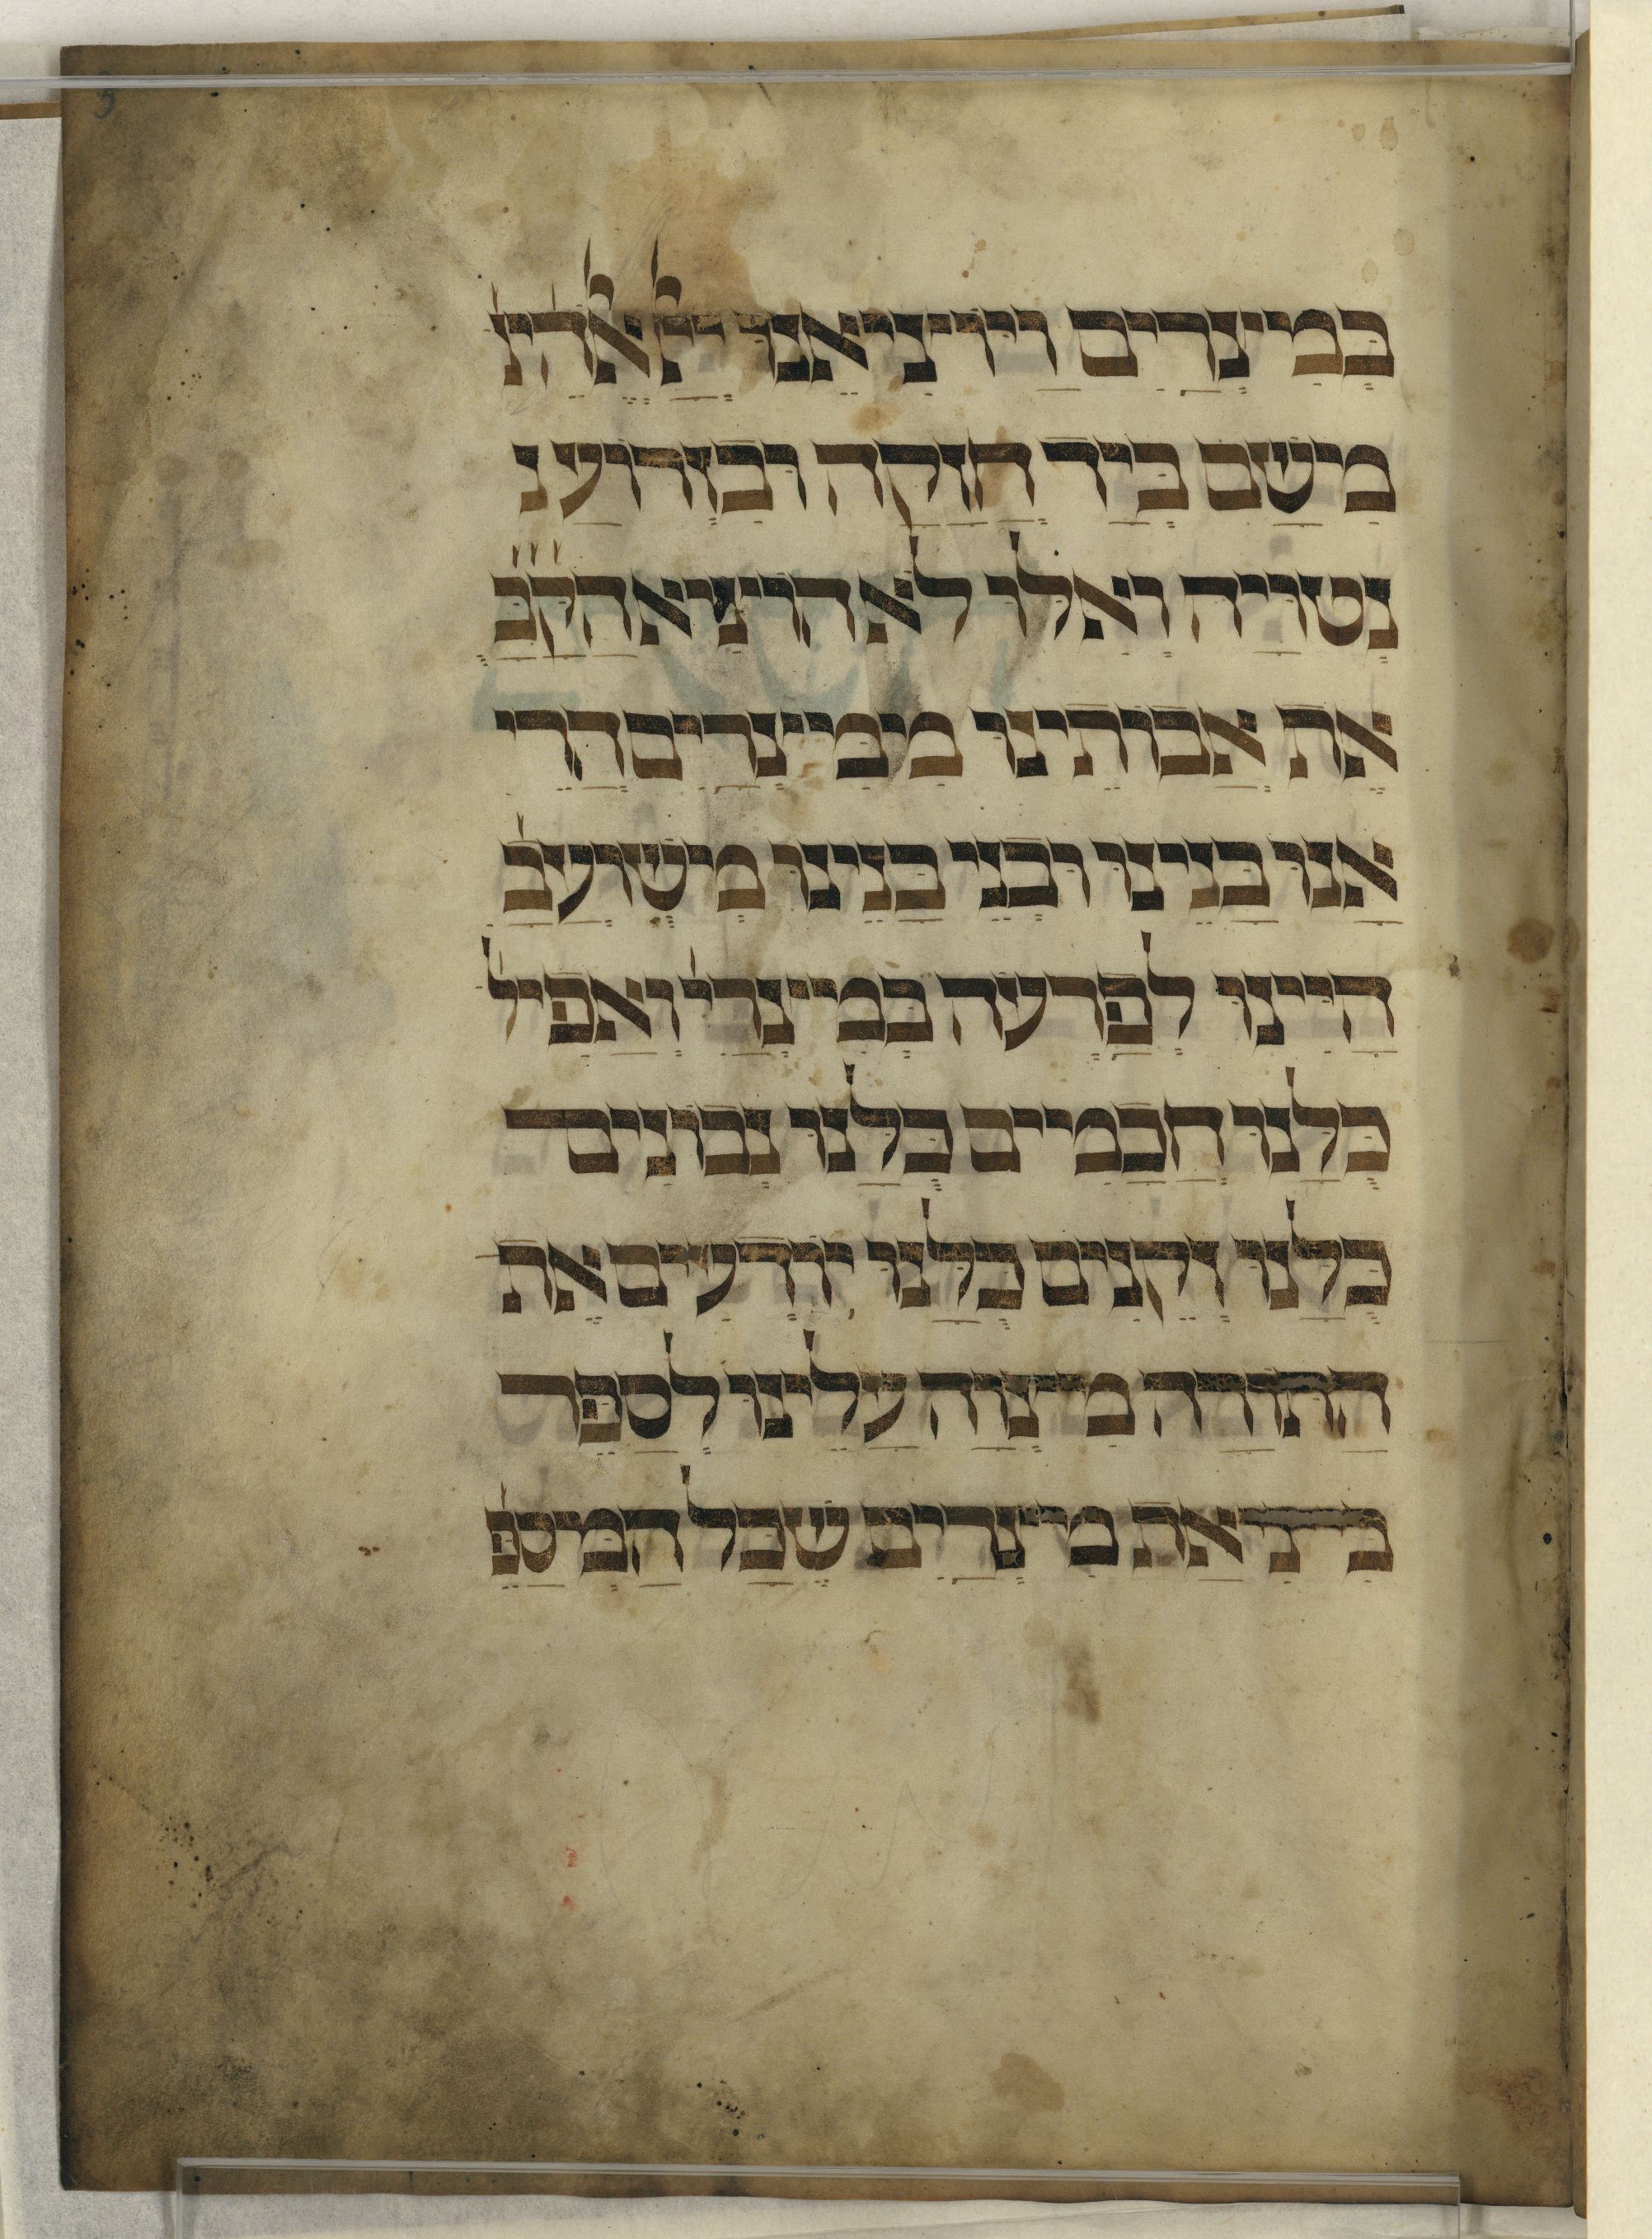 בְּמִיצְרַיִם וַיּוֹצִיאֵנוּ יְיָ אֱלֹהֵינ
מִשָּׁם בְּיָד חֲזָקָה וּבִזְרוֹעַ נ
נְטוּיָה וְאִלּוּ לֹא הוֹצִיא הַקָּבָּ
אֶת אֲבוֹתֵינוּ מִמִּיצְרַיִם הֲרֵי
אָנוּ בָּנֵינוּ וּבְנֵי בָנֵינוּ מְשׁוּעְבָּ
הָיִינוּ לְפַרְעֹה בְּמִיצְרַי וַאֲפִיל
כֻּלָּנוּ חֲכָמִים כֻּלָּנוּ נְבוֹנִים
כֻּלָּנוּ זְקֵנִים כֻּלָּנוּ יוֹדְעִים אֶת
הַתּוֹרָה מִצְוָה עָלֵינוּ לְסַפֵּר
בִּיצִיאַת מִיצְרַיִם שֶׁכָּל הַמְסַפֵּ